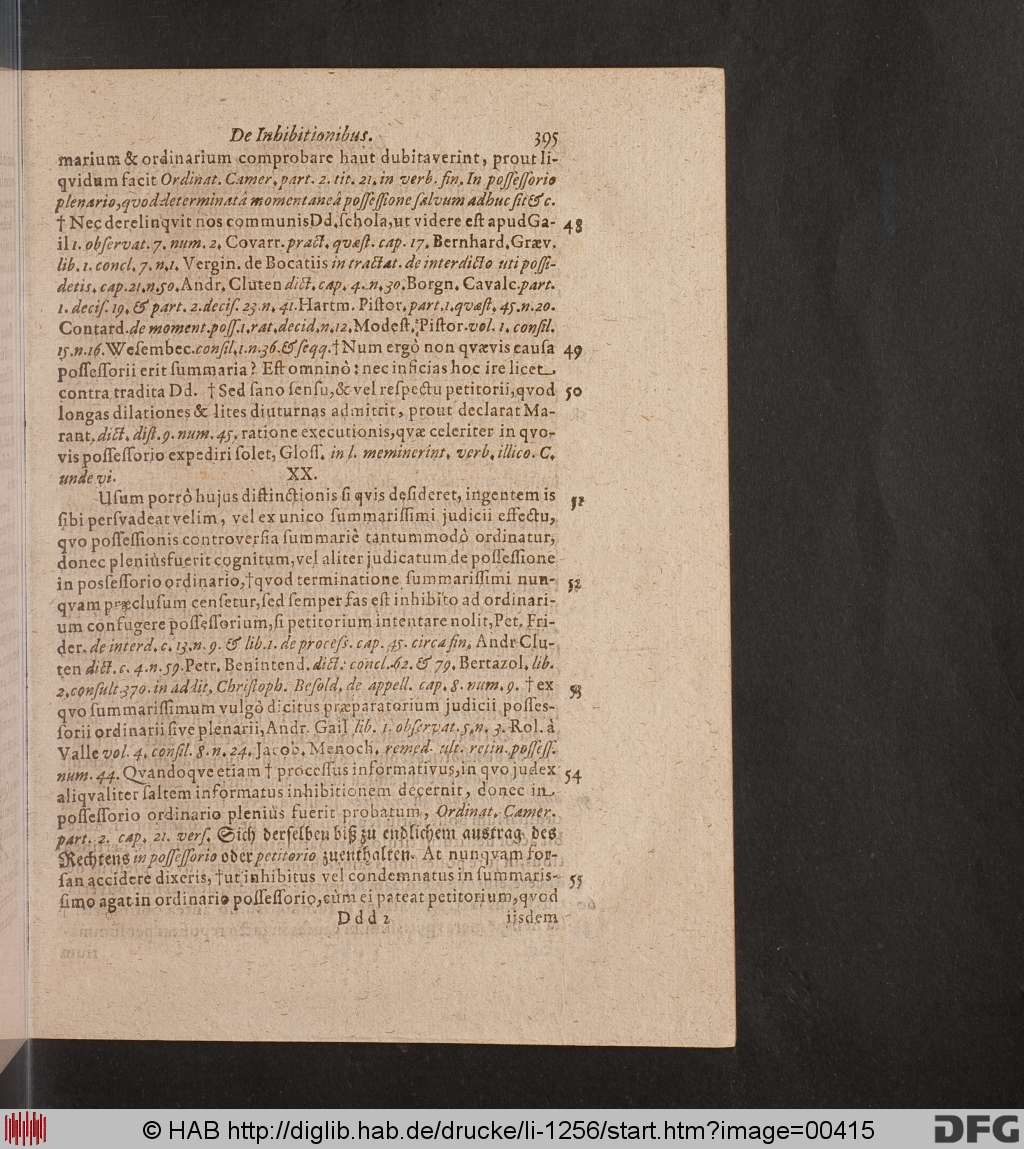 De Inhibitionibus. 395
marium & ordinarium comprobare haut dubitaverint, prout li-
qvidum facit Ordinat. Camer. part. 2. tit. 21. in verb. fin. In possessorio
plenario, quod determinatâ momentaneâ possessione salvum adhuc sit &c.
† Nec derelinqvit nos communis Dd. schola, ut videre est apud Ga- 48
il 1. observat. 7. num. 2. Covarr. pract. quæst. cap. 17. Bernhard. Græv.
lib. 1. concl. 7. n. 1. Vergin. de Bocatiis in tractat. de interdicto uti possi-
detis. cap. 21. n. 50. Andr. Cluten dict. cap. 4. n. 30. Borgn. Cavalc. part.
1. decis. 19. & part. 2. decis. 23. n. 41. Hartm. Pistor. part. 1. quæst. 45. n. 20.
Contard. de moment. poss. 1. rat. decid. n. 12. Modest. Pistor. vol. 1. consil.
15. n. 16. Wesembec. consil. 1. n. 36. & seqq. † Num ergò non qvævis causa 49
possessorii erit summaria? Est omninò: nec inficias hoc ire licet
contra tradita Dd. † Sed sano sensu, & vel respectu petitorii, qvod 50
longas dilationes & lites diuturnas admittit, prout declarat Ma-
rant. dict. dist. 9. num. 45. ratione executionis, qvæ celeriter in qvo-
vis possessorio expediri solet, Gloss. in l. meminerint. verb. illico. C.
unde vi. XX.
Usum porrò hujus distinctionis si qvis desideret, ingentem is 51
sibi persvadeat velim, vel ex unico summarissimi judicii effectu,
qvo possessionis controversia summariè tantummodò ordinatur,
donec pleniùs fuerit cognitum, vel aliter judicatum de possessione
in possessorio ordinario, † qvod terminatione summarissimi nun- 52
qvam præclusum censetur, sed semper fas est inhibito ad ordinari-
um confugere possessorium, si petitorium intentare nolit, Pet. Fri-
der. de interd. c. 13. n. 9. & lib. 1. de process. cap. 45. circa fin. Andr Clu-
ten dict. c. 4. n. 59. Petr. Benintend. dict. concl. 62. & 79. Bertazol. lib.
2. consult 370. in addit. Christoph. Besold. de appell. cap. 8. num. 9. † ex 53
qvo summarissimum vulgò dicitus præparatorium judicii posses-
sorii ordinarii sive plenarii, Andr. Gail lib. 1. observat. 5. n. 3. Rol. à
Valle vol. 4. consil. 8. n. 24. Jacob. Menoch. remed. ult. retin. possess.
num. 44. Qvandoqve etiam † processus informativus, in qvo judex 54
aliqvaliter saltem informatus inhibitionem decernit, donec in
possessorio ordinario plenius fuerit probatum, Ordinat. Camer.
part. 2. cap. 21. vers. Sich derselben biß zu endlichem austrag des
Rechtens in possessorio oder petitorio zuenthalten. At nunqvam for-
san accidere dixeris, † ut inhibitus vel condemnatus in summaris- 55
simo agat in ordinario possessorio, cùm ei pateat petitorium, qvod
Ddd 2 iisdem
© HAB http://diglib.hab.de/drucke/li-1256/start.htm?image=00415
DFG